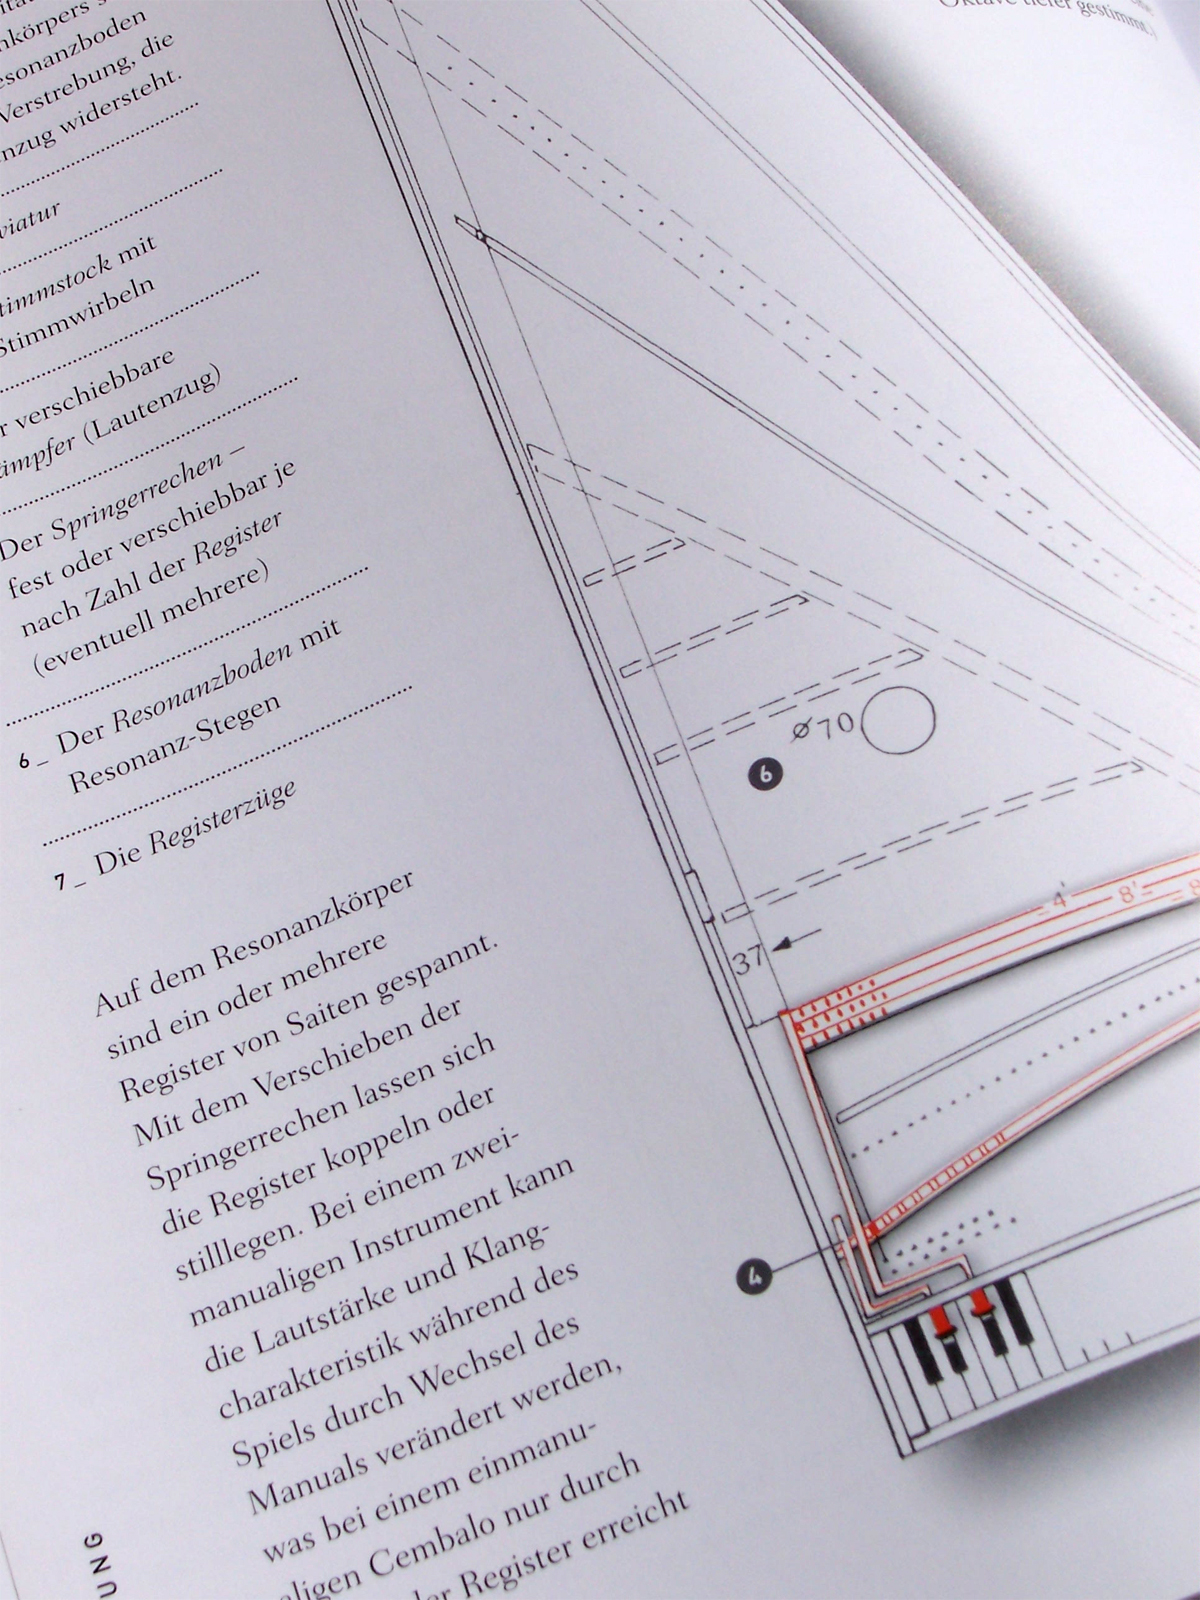 nkörpers
esonanzboden
Verstrebung, die
nzug widersteht.
viatur
timmstock mit
Stimmwirbeln
r verschiebbare
ämpfer (Lautenzug)
Der Springerrechen –
fest oder verschiebbar je
nach Zahl der Register
(eventuell mehrere)
6_ Der Resonanzboden mit
Resonanz-Stegen
7_ Die Registerzüge
Auf dem Resonanzkörper
sind ein oder mehrere
Register von Saiten gespannt.
Mit dem Verschieben der
Springerrechen lassen sich
die Register koppeln oder
stilllegen. Bei einem zwei-
manualigen Instrument kann
die Lautstärke und Klang-
charakteristik während des
Spiels durch Wechsel des
Manuals verändert werden,
was bei einem einmanu-
aligen Cembalo nur durch
der Register erreicht
UNG
Oktave tiefer gestimmt.)
ø70
6
4' 8' 8
37
4